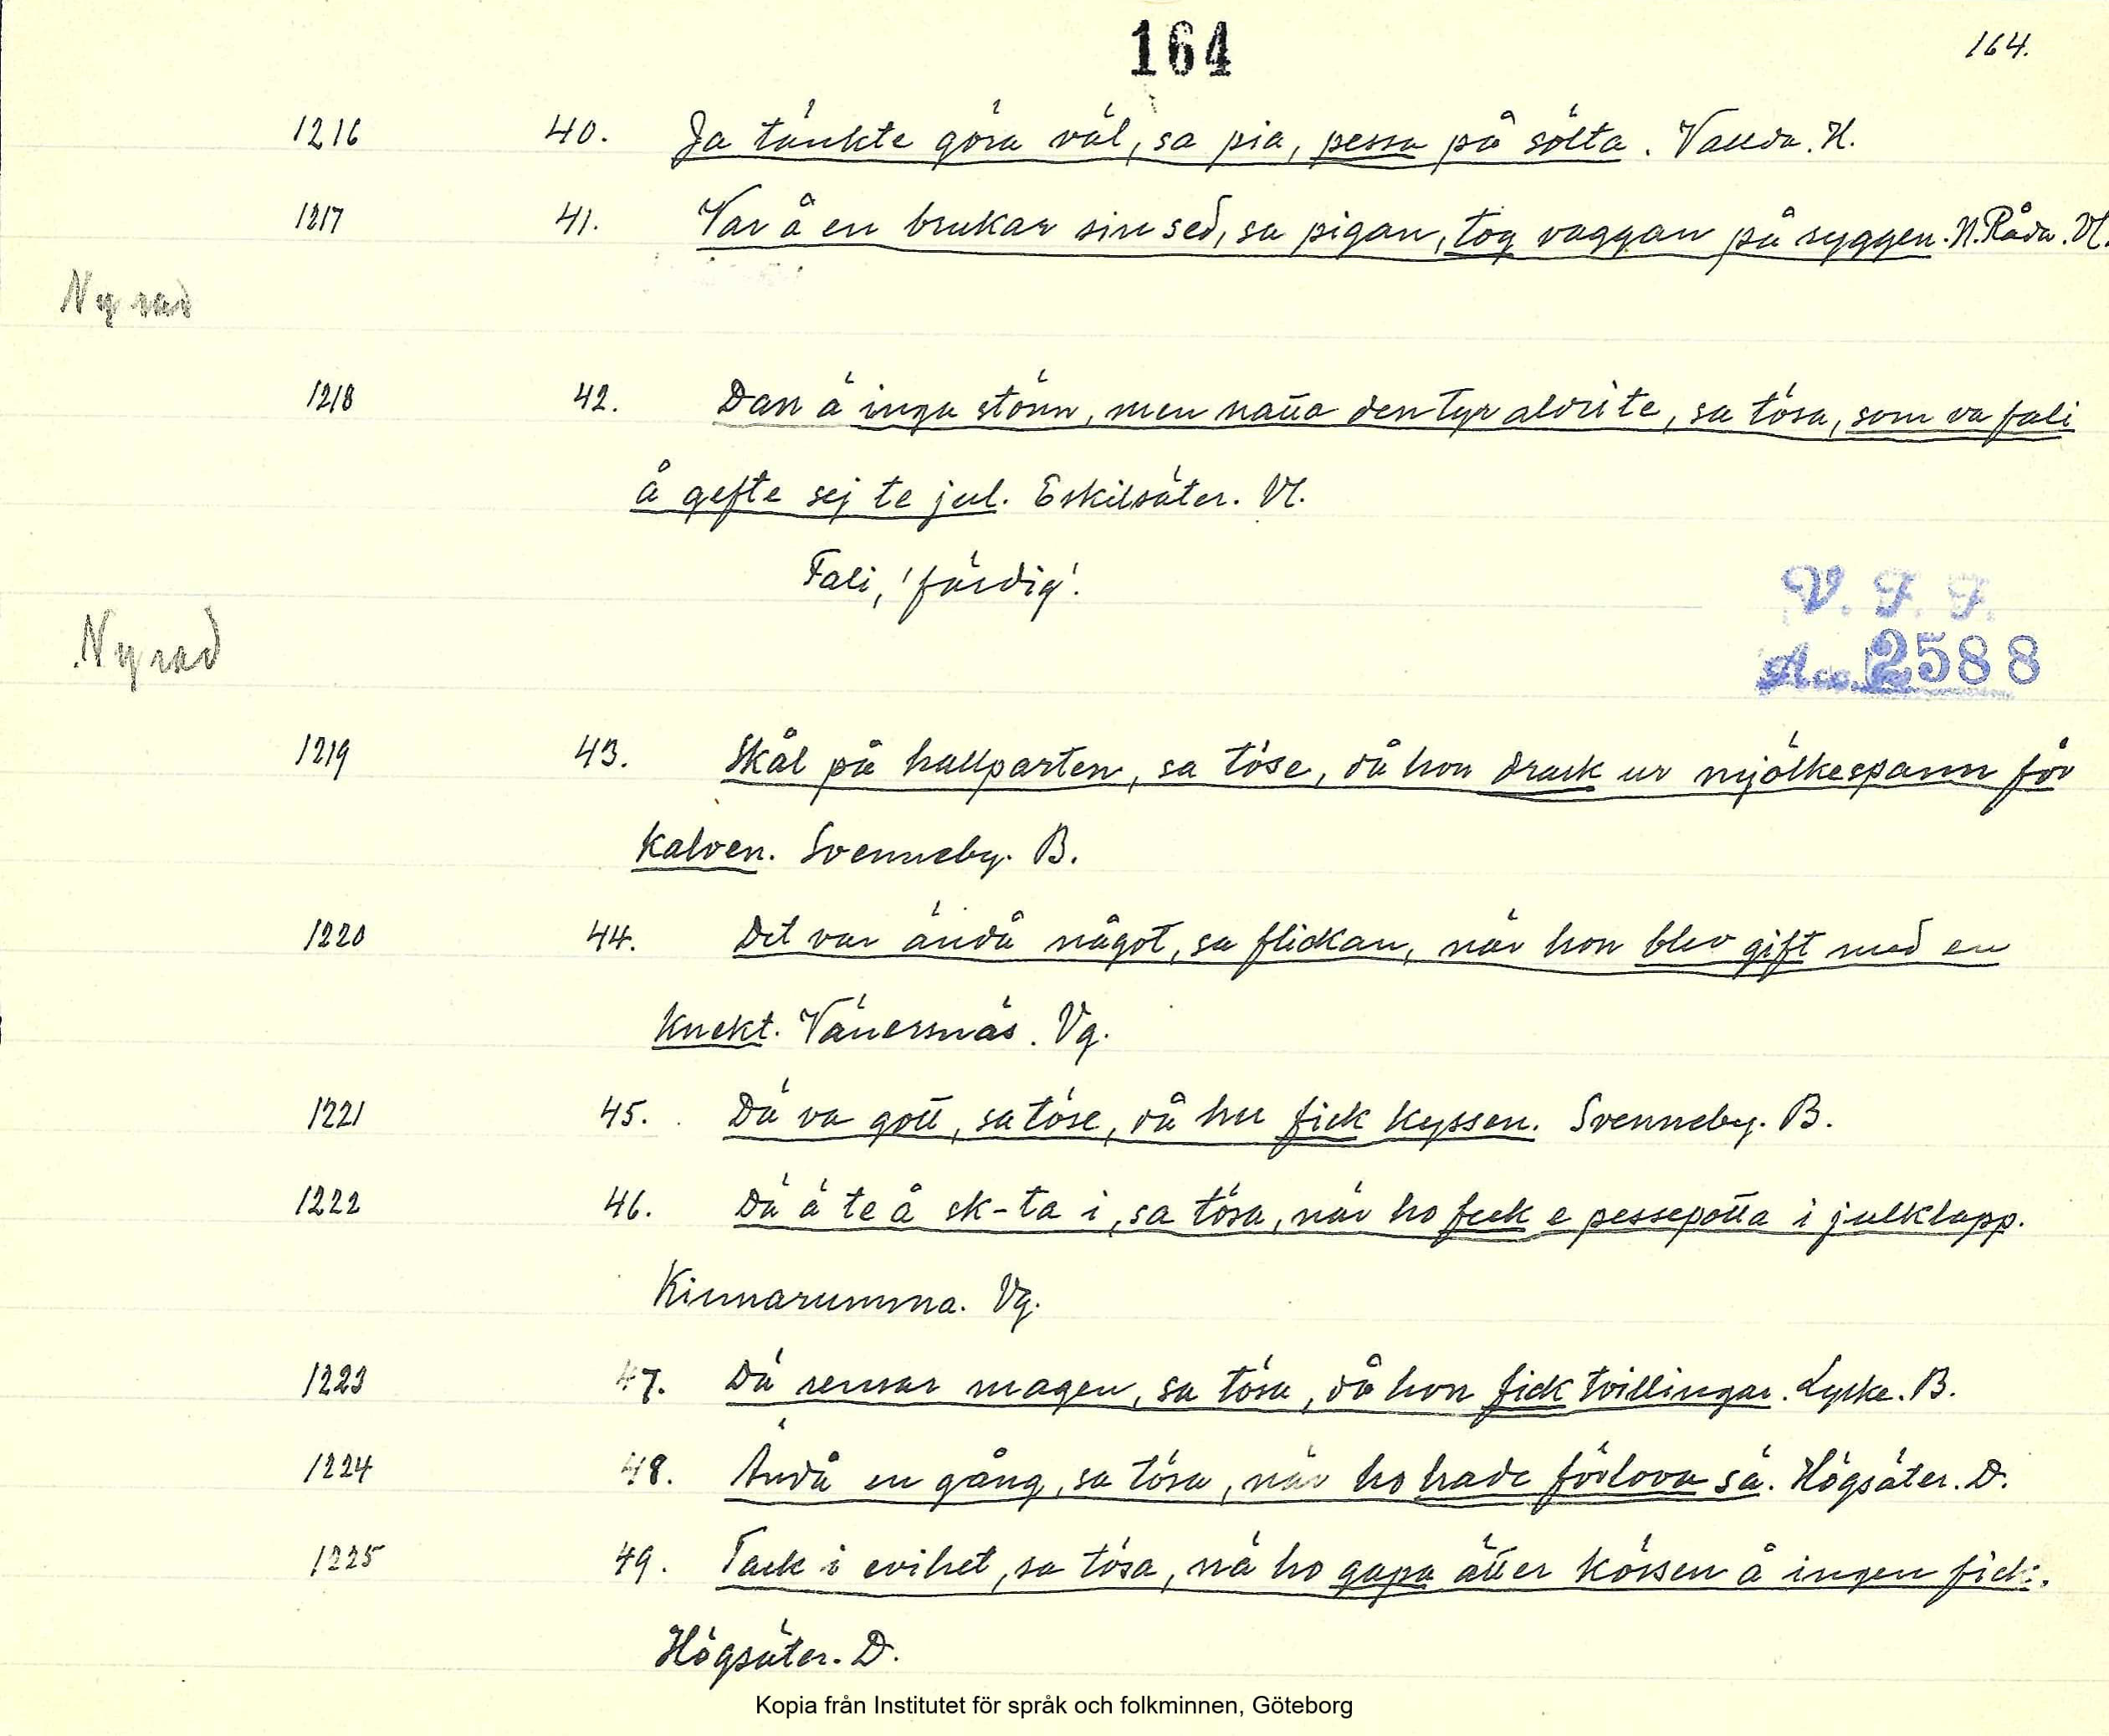 164
164.
1216 40. Ja tänkte göra väl, sa pia, pessa på sölta. Vallda. H.
1217 41. Var å en brukar sin sed, sa pigan, tog vaggan på ryggen. N. Råda. Vl.
Ny rad
1218 42. Dan ä inga stönn, men natta den tyr aldri te, sa tösa, som va fali
å gefte sej te jul. Eskilsäter. Vl.
Fali, 'färdig'.
V. F. F.
Acc. 2588
Ny rad
1219 43. Skål på hallparten, sa töse, då hon drack ur mjölkespann för
kalven. Svenneby. B.
1220 44. Det var ändå något, sa flickan, när hon blev gift med en
knekt. Vänersnäs. Vg.
1221 45. Dä va gott, sa töse, då hu fick kyssen. Svenneby. B.
1222 46. Dä ä te å sk-ta i, sa tösa, när ho feck e pessepotta i julklapp.
Kinnarumma. Vg.
1223 47. Dä rensar magen, sa tösa, då hon fick tvillingar. Lycke. B.
1224 48. Ändå en gång, sa tösa, när ho hade förlova sä. Högsäter. D.
1225 49. Tack i evihet, sa tösa, nä ho gapa ätter körsen å ingen fick.
Högsäter. D.
Kopia från Institutet för språk och folkminnen, Göteborg